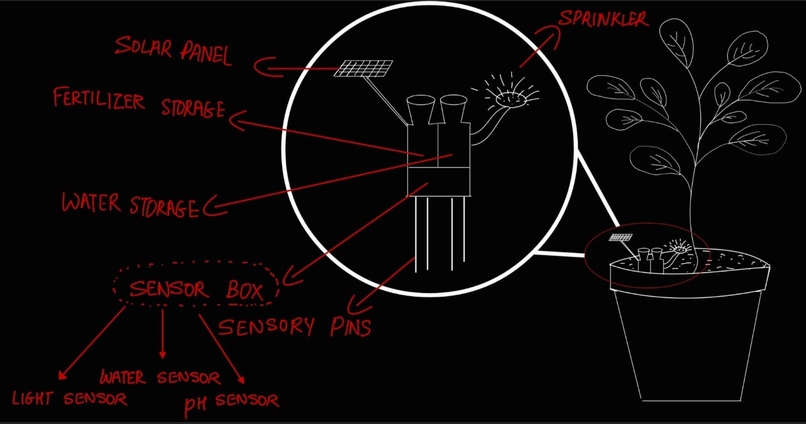 SPRINKLER
SOLAR PANEL
FERTILIZER STORAGE
WATER STORAGE
SENSOR BOX
SENSORY PINS
WATER SENSOR
LIGHT SENSOR
pH SENSOR